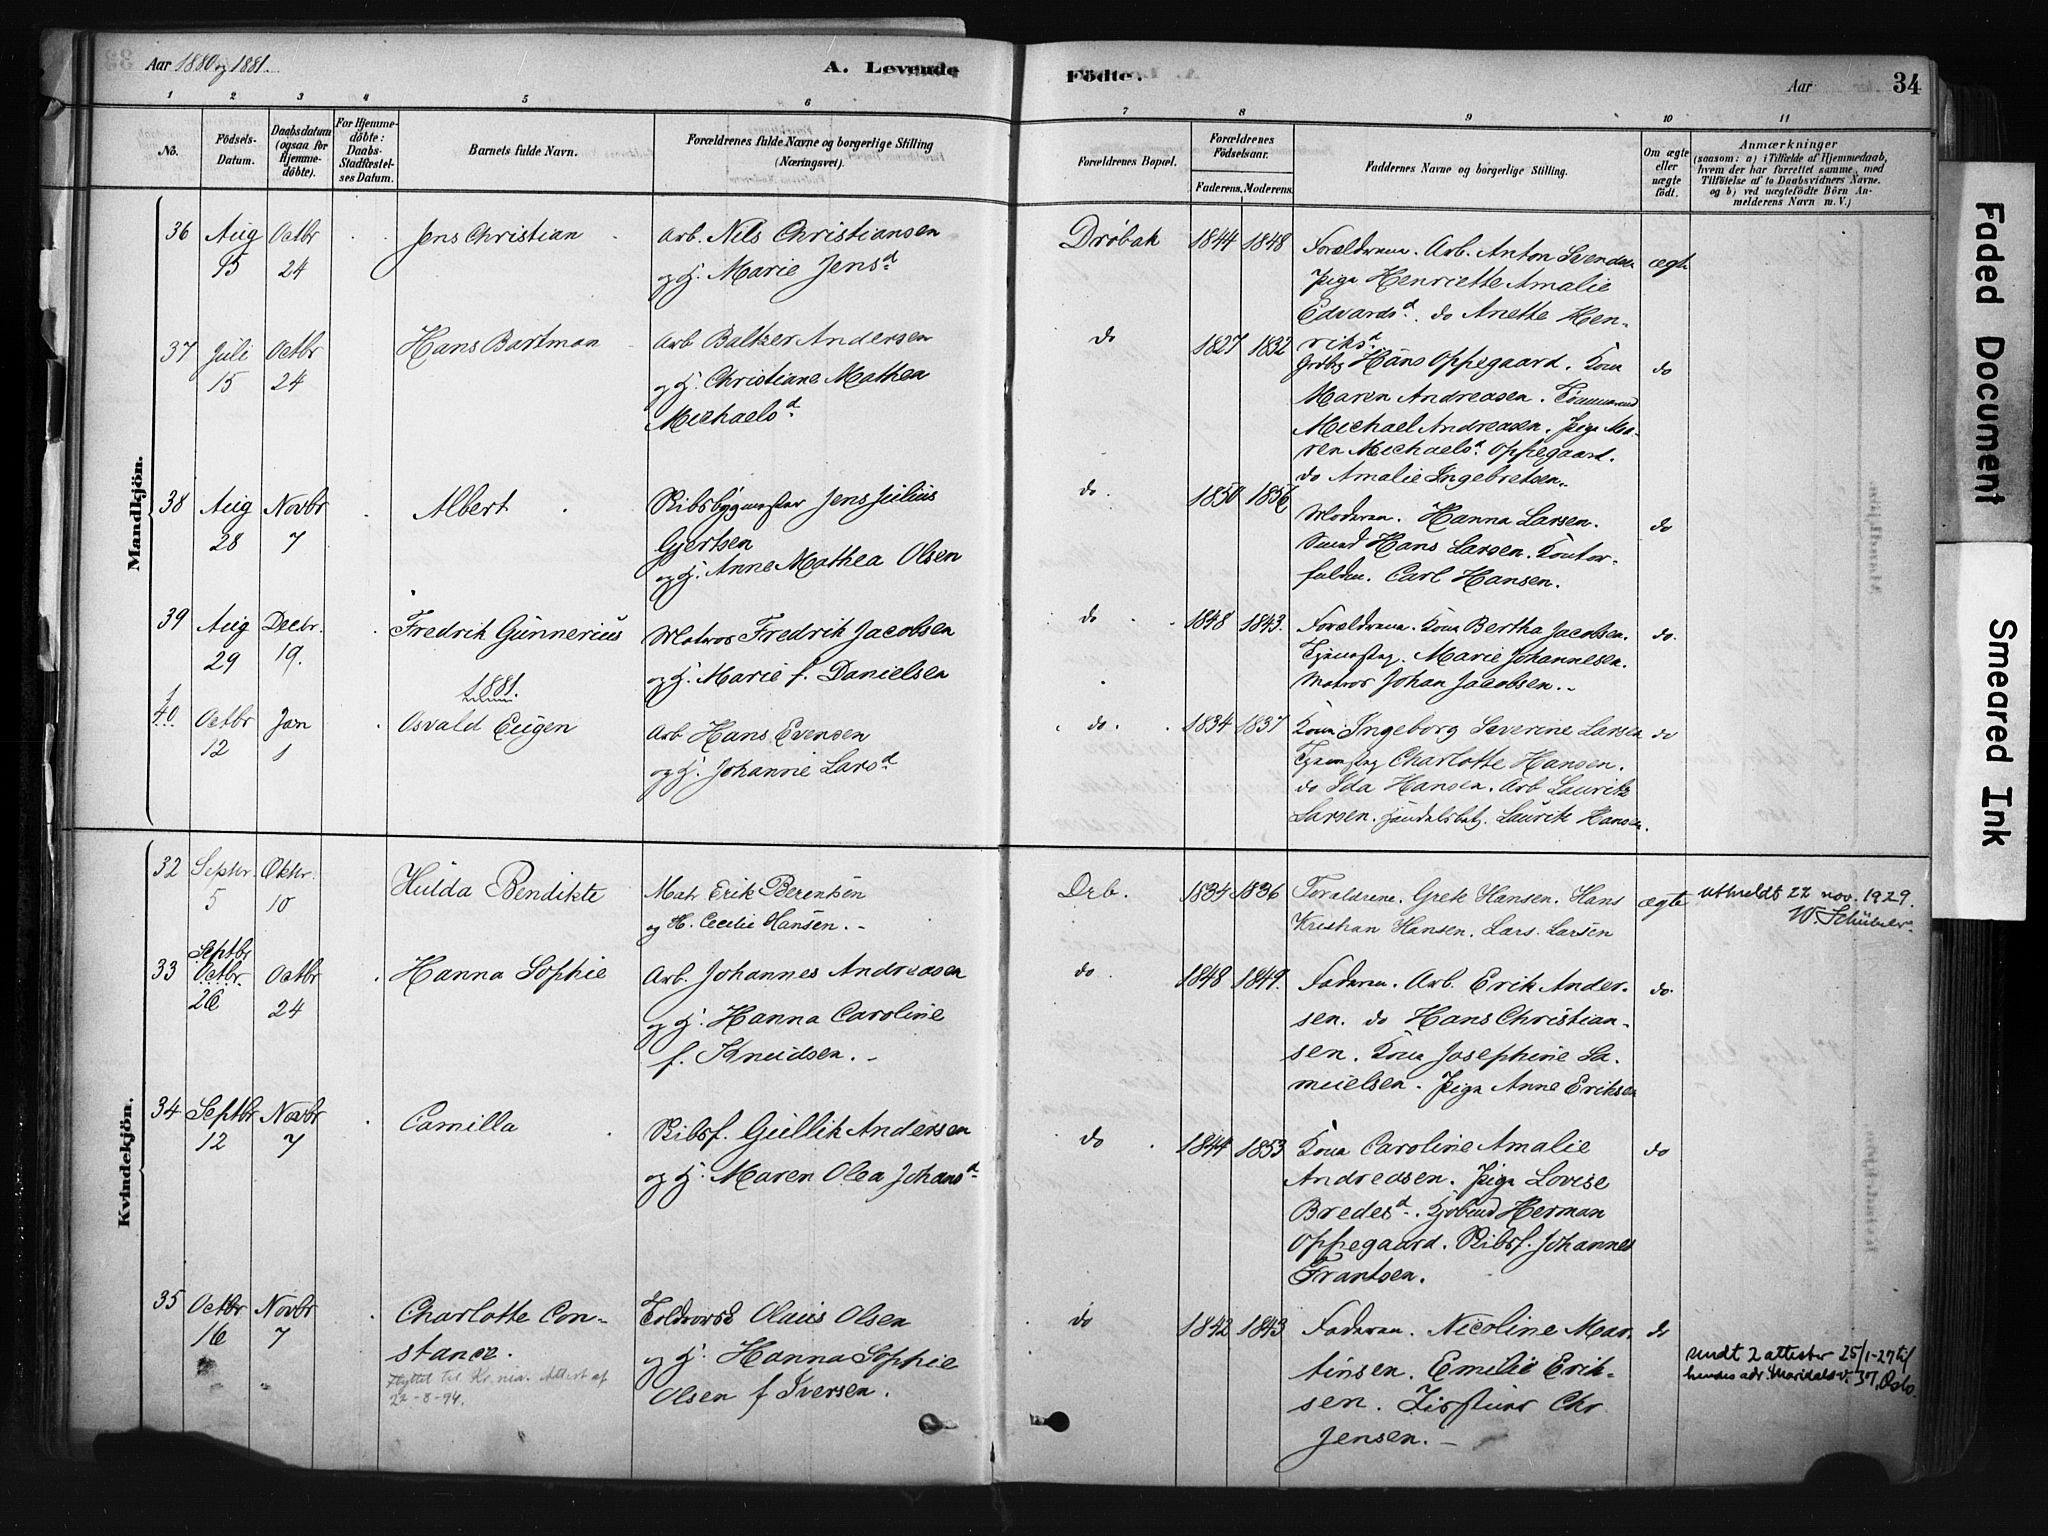 Aar 1880 og 1881.
A. Levende
Födte.
Aar
34
1 2 3 4 5 6 7 8 9 10 11
No.
Födsels-Datum.
Daabsdatum (ogsaa for Hjemme-döbte).
For Hjemme-döbte: Daabs-Stadfæstel-ses Datum.
Barnets fulde Navn.
Forældrenes fulde Navne og borgerlige Stilling (Næringsvei).
Forældrenes Bopæl.
Forældrenes Födselsaar.
Faderens. Moderens.
Faddernes Navne og borgerlige Stilling.
Om ægte eller uægte födt.
Anmærkninger
(saasom: a) i Tilfælde af Hjemmedaab, hvem der har forrettet samme, med Tilföielse af to Daabsvidners Navne. og b) ved uægtefödte Börn Anmelderens Navn m. V.)
Mandkjön.
36 Aug 15 Octbr 24 Jens Christian
Arb. Nils Christiansen
og H. Marie Jensd
Drøbak 1844 1848
Forældrene. Arb. Anton Svendsen
Pige Henriette Amalie
Edvardsd. do Anette Hen-
riksd
ægte
37 Juli 15 Octbr 24 Hans Bartman
Arb Baltzer Andersen
og H. Christiane Mathea
Michaelsd
do 1827 1832
Hans Oppegaard. Kone
Maren Andreasen.
Michael Andreasen. Pige Ma-
ren Michaelsd. Oppegaard.
do Amalie Ingebretsen.
do
38 Aug 28 Novbr 7 Albert
Skibsbygmester Jens Julius
Gjertsen
og H. Anne Mathea Olsen
do. 1850 1856
Moderen. Hanna Larsen.
Smed Hans Larsen. Kontor-
Carl Hansen.
do
39 Aug 29 Decbr. 19. Fredrik Gunnerius
Matros Fredrik Jacobsen
og H. Marie f. Danielsen
do 1848 1843.
Forældrene. Kone Bertha Jacobsen.
Marie Johannesen.
Matros Johan Jacobsen.
do.
1881.
40 Octbr 12 Jan 1 Osvald Eugen
Arb Hans Evensen
og H. Johanne Larsd
do 1834 1837
Kone Ingeborg Severine Larsen
Charlotte Hansen.
do Ida Hansen. Arb Lauritz
Larsen. Laurik Hansen.
do
Kvindekjön.
32 Septbr. 5 Oktbr. 10 Hulda Bendikte
Matr Erik Berentsen
og H. Cecilie Hansen.
Drb. 1834 1836
Foraldrene. Grete Hansen. Hans
Kristian Hansen. Lars Larsen
ægte
Uthuldt 22 nov. 1929.
33 Septbr Octbr. 26 Octbr 24 Hanna Sophie
Arb. Johannes Andreasen
og H. Hanna Caroline
f. Knudsen.
do. 1848 1849.
Faderen. Arb. Erik Ander-
sen. do Hans Christian-
sen. Kone Josephine Sa-
muelsen. Pige Anne Eriksen
do.
34 Septbr 12 Novbr 7 Camilla
Skibsf. Gullik Andersen
og H. Maren Olea Johansd
do 1844 1853
Kone Caroline Amalie
Andreasen. Pige Lovise
Bredesd. Herman
Oppegaard. Skibsf. Johannes
Frantsen.
do
35 Octbr 16 Novbr 7 Charlotte Con-
stance.
Flyttet til Kr.nia. Attest af
22-8-94.
Olaus Olsen
og H. Hanna Sophie
Olsen f Iversen.
do 1842 1843
Faderen. Nicoline Mar-
tinsen. Emilie Erik-
sen. Chr
Jensen.
do
sendt 2 attester 25/1-27 til
hendes adr. Maridalsv. 37, Oslo.
Faded Document
Smeared Ink